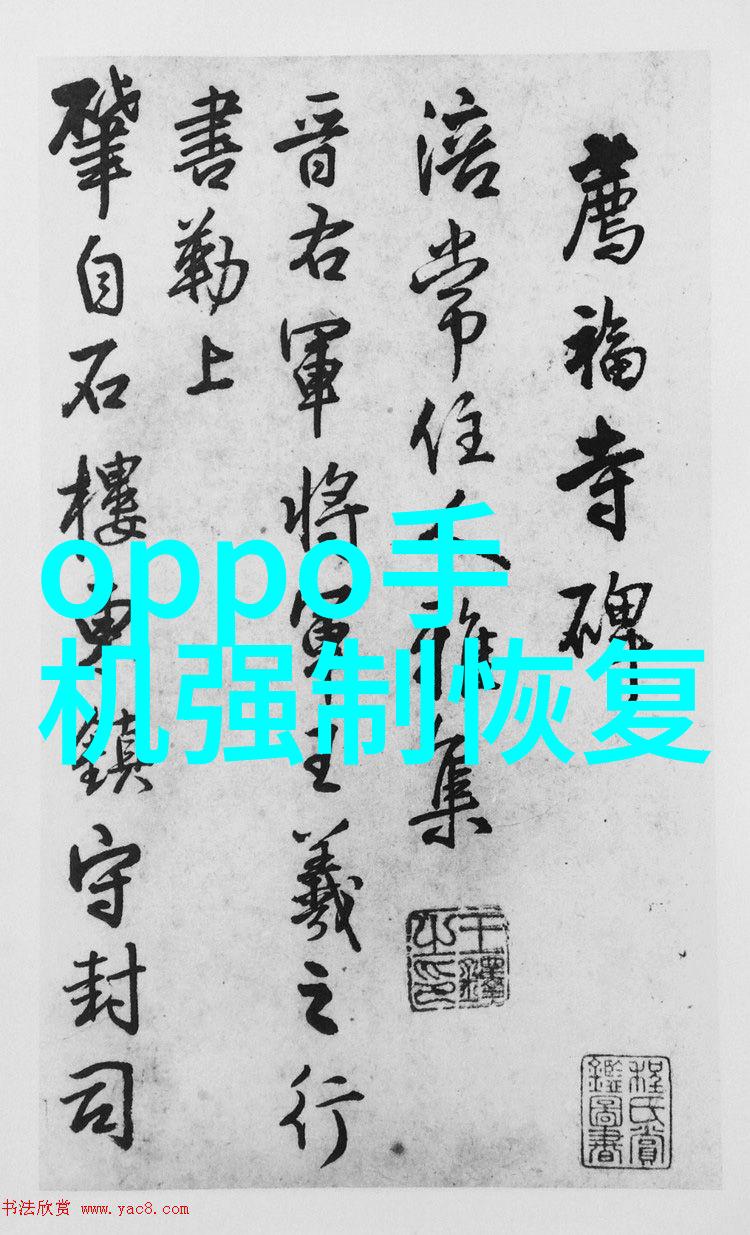 薦福寺碑
涪常住雅集
晋右軍將軍王羲之行
書勒上
肇自石樓東鎮守封司
oppo手
机强制恢复
王鐸之印
程氏賞鑑圖書
书法欣赏 www.yac8.com